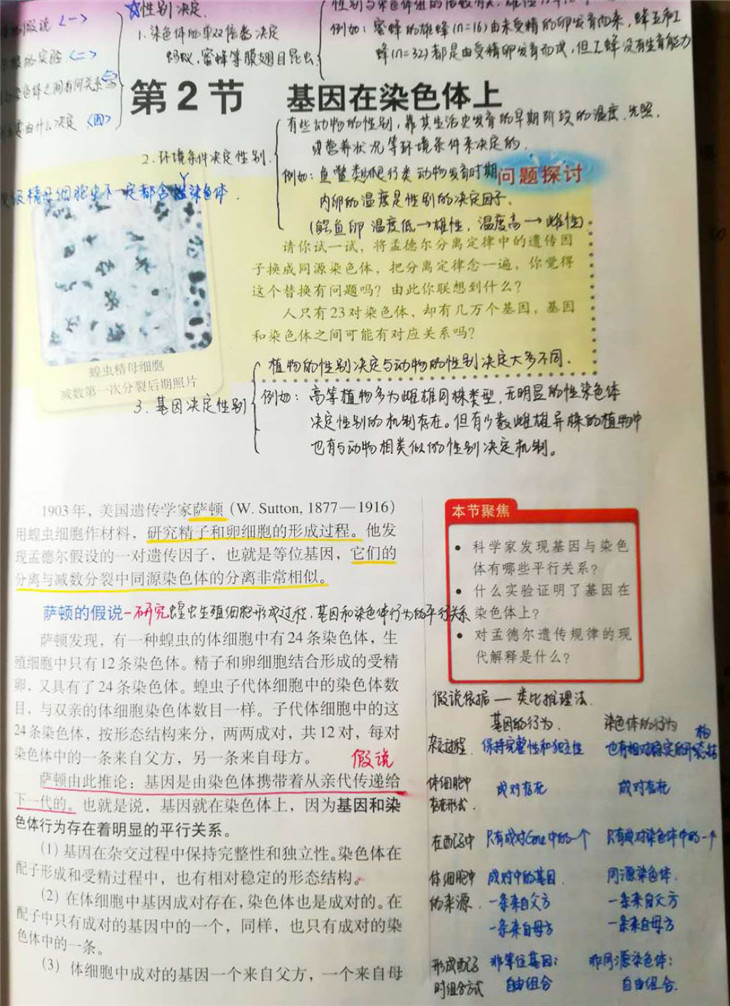 假说〈一〉
的实验〈二〉
色体之间有何关系〈三〉
由什么决定〈四〉
☆性别决定.
1.染色体的单双倍数决定
蚂蚁,蜜蜂等膜翅目昆虫
例如: 蜜蜂的雄蜂(n=16)由未受精的卵发育而来,蜂王和工
蜂(n=32)都是由受精卵发育而成,但工蜂没有生育能力
第2节 基因在染色体上
2.环境条件决定性别.
有些动物的性别,靠其生活史发育的早期阶段的温度、光照.
或营养状况等环境条件来决定的.
例如: 鱼鳖类爬行类动物发育时期
内卵的温度是性别的决定因子.
(鳄鱼卵 温度低→雄性, 温度高→雌性)
级精母细胞中不一定都含Y性染色体.
问题探讨
请你试一试,将孟德尔分离定律中的遗传因
子换成同源染色体,把分离定律念一遍,你觉得
这个替换有问题吗?由此你联想到什么?
人只有23对染色体,却有几万个基因,基因
和染色体之间可能有对应关系吗?
蝗虫精母细胞
减数第一次分裂后期照片
3.基因决定性别
植物的性别决定与动物的性别决定大多不同.
例如: 高等植物多为雌雄同株类型,无明显的性染色体
决定性别的机制存在.但有少数雌雄异株的植物中
也有与动物相类似的性别决定机制.
1903年,美国遗传学家萨顿(W. Sutton, 1877—1916)
用蝗虫细胞作材料,研究精子和卵细胞的形成过程。他发
现孟德尔假设的一对遗传因子,也就是等位基因,它们的
分离与减数分裂中同源染色体的分离非常相似。
萨顿的假说-研究蝗虫生殖细胞形成过程,基因和染色体行为的平行关系
萨顿发现,有一种蝗虫的体细胞中有24条染色体,生
殖细胞中只有12条染色体。精子和卵细胞结合形成的受精
卵,又具有了24条染色体。蝗虫子代体细胞中的染色体数
目,与双亲的体细胞染色体数目一样。子代体细胞中的这
24条染色体,按形态结构来分,两两成对,共12对,每对
染色体中的一条来自父方,另一条来自母方。
假说
萨顿由此推论:基因是由染色体携带着从亲代传递给
下一代的。也就是说,基因就在染色体上,因为基因和染
色体行为存在着明显的平行关系。
(1)基因在杂交过程中保持完整性和独立性。染色体在
配子形成和受精过程中,也有相对稳定的形态结构。
(2)在体细胞中基因成对存在,染色体也是成对的。在
配子中只有成对的基因中的一个,同样,也只有成对的染
色体中的一条。
(3) 体细胞中成对的基因一个来自父方,一个来自母
本节聚焦
• 科学家发现基因与染色
体有哪些平行关系?
• 什么实验证明了基因在
染色体上?
• 对孟德尔遗传规律的现
代解释是什么?
假说依据 — 类比推理法.
基因的行为 染色体的行为
杂交过程. 保持完整性和独立性 也有相对稳定的形态结构
体细胞中 成对存在 成对存在
存在形式.
在配子中 只有成对Gene中的一个 只有成对染色体中的一个
体细胞中 成对中的基因. 同源染色体.
的来源. 一条来自父方 一条来自父方
一条来自母方 一条来自母方
形成配子 非等位基因: 非同源染色体:
时组合方式 自由组合 自由组合.